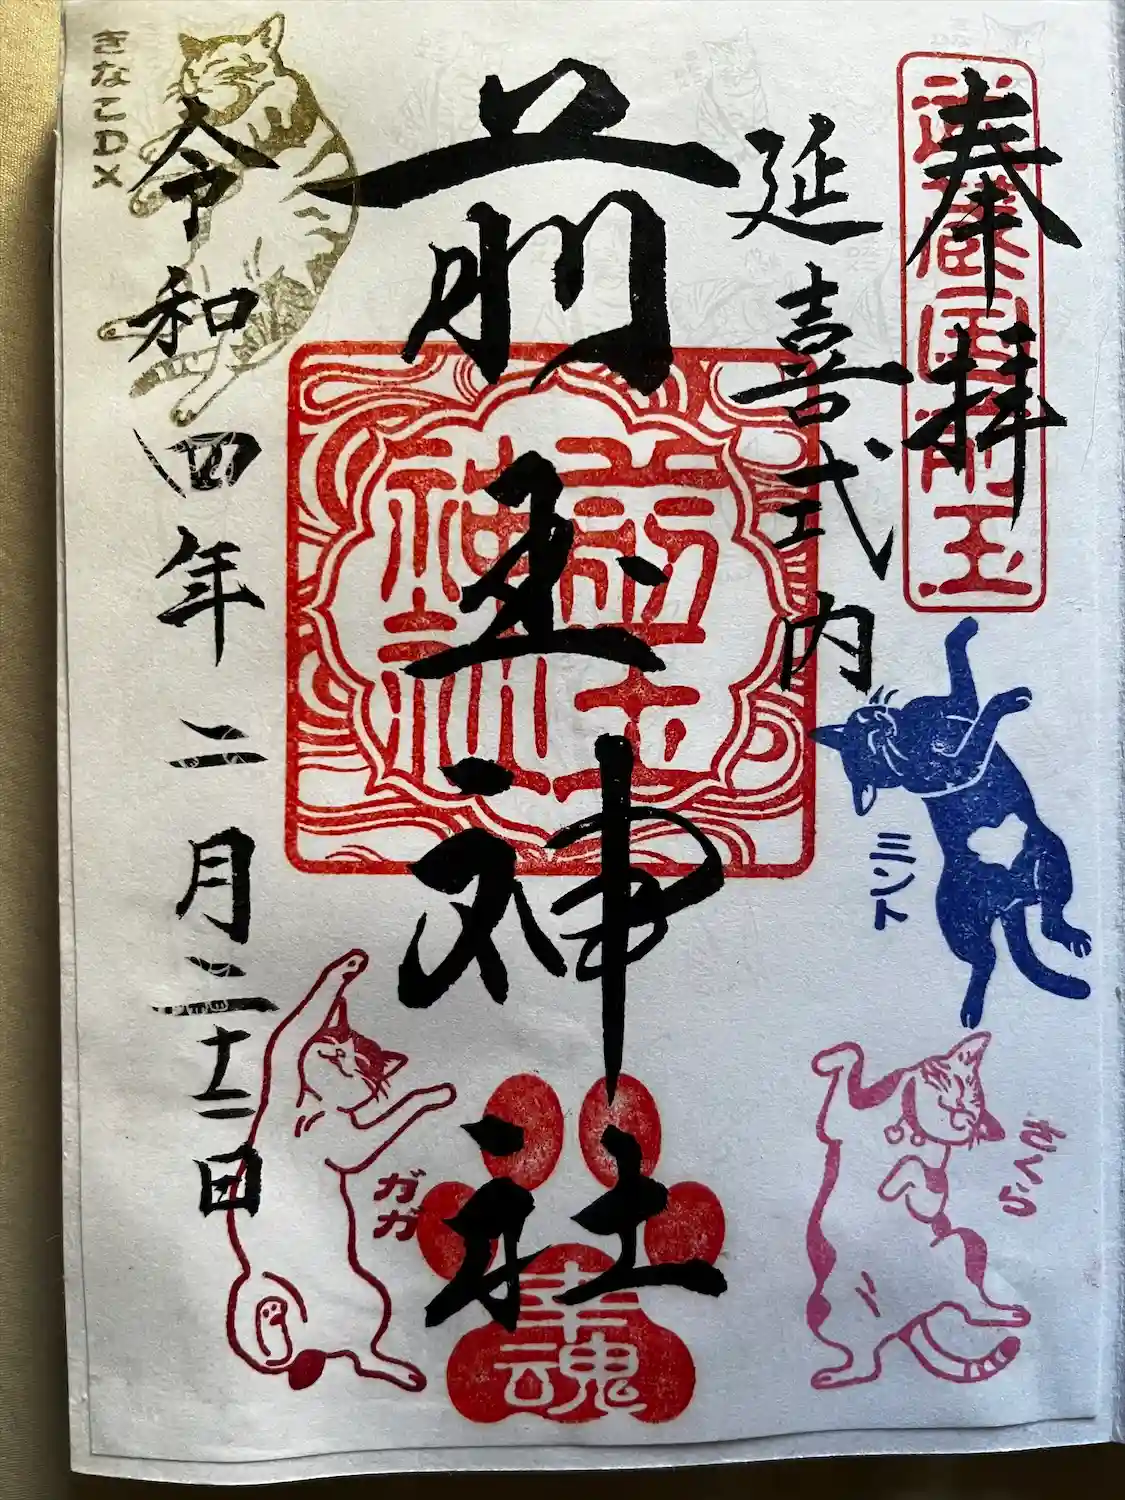 奉拝
武蔵国前玉
延喜式内
前玉神社
前玉
神社
幸魂
令和四年二月二十二日
きなこDX
ミント
さくら
ガガ